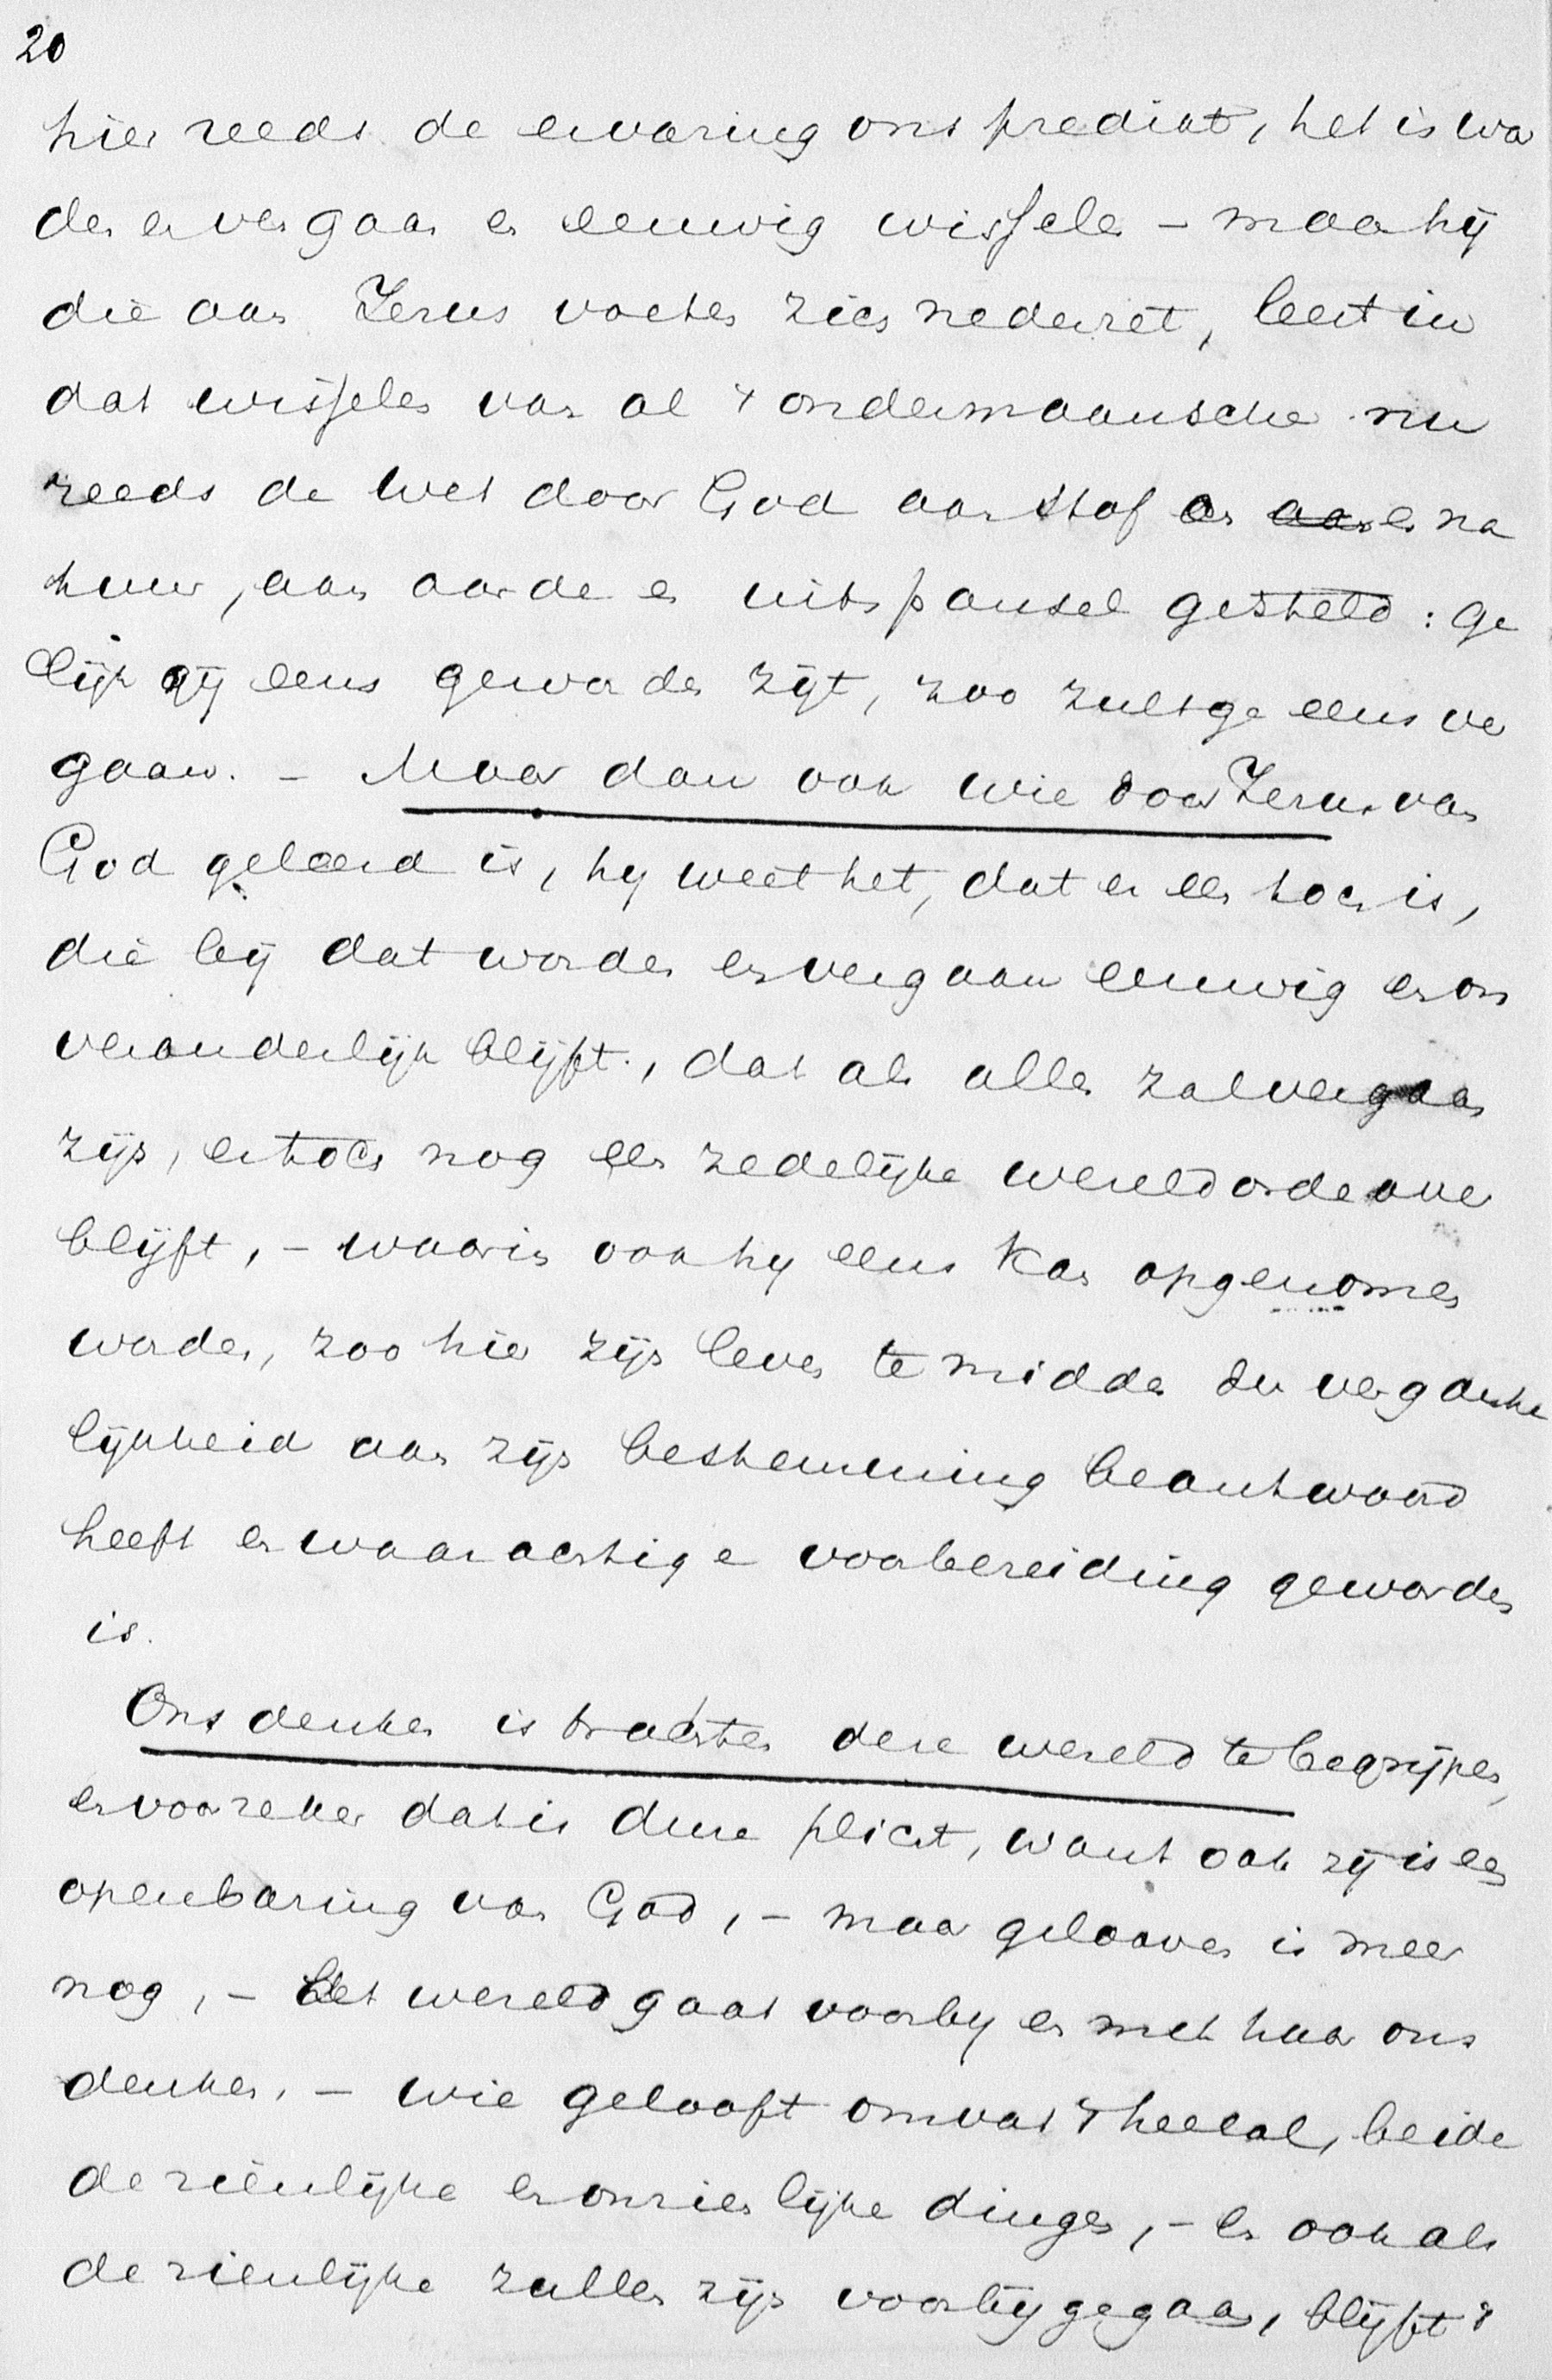 20
hier reeds de ervaring ons predikt, het is wor
den en vergaan en eeuwig wisselen - maar hij
die aan Jezus voeten zich nederzet, leert in
dat wisselen van al 't ondermaansche nu
reeds de wet door God aan stof en aan en na
tuur, aan aarde en uitspansel gesteld: ge
lijk gij eens geworden zijt, zoo zult ge eens ver
gaan. - Maar dan ook wie door Jezus van
God geleerd is, hy weet het, dat er een toch is,
die bij dat worden en vergaan eeuwig en on
veranderlijk blijft, dat als alles zal vergaan
zijn, er toch nog een zedelijke wereldorde over
blijft, - waarin ook hy eens kan opgenomen
worden, zoo hier zijn leven te midden der verganke
lijkheid aan zijn bestemming beantwoord
heeft en waarachtige voorbereiding geworden
is.
Ons denken is trachten deze wereld te begrijpen,
en voorzeker dat is dure plicht, want ook zij is een
openbaring van God, - maar gelooven is meer
nog, - Het wereld gaat voorby en met haar ons
denken. - wie gelooft omvat 't heelal, beide
de zienlijke en onzienlijke dingen, - en ook als
de zienlijke zullen zijn voorbijgegaan, blijft 't